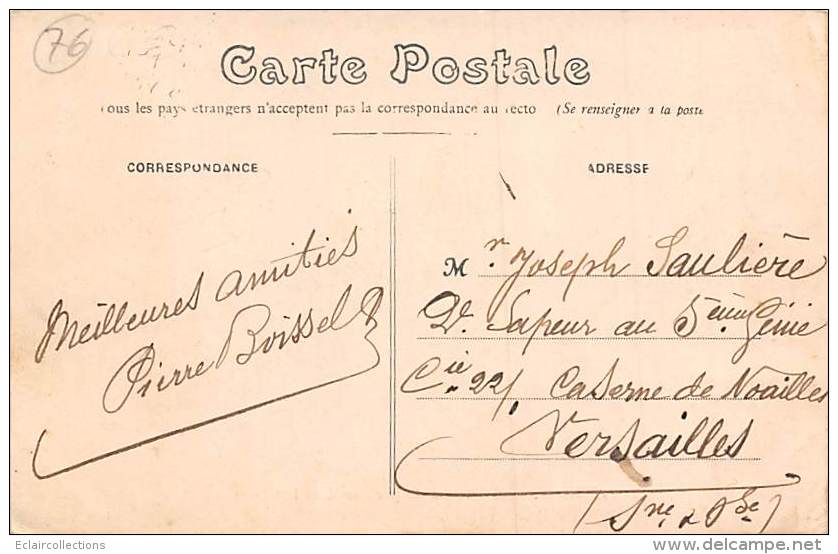 76
Carte Postale
Tous les pays étrangers n'acceptent pas la correspondance au recto (Se renseigner à la poste
CORRESPONDANCE
ADRESSE
Meilleures amitiés
Pierre Boissel
Mr Joseph Saulière
Sapeur au 5ème Génie
Cie 22/ Caserne de Noailles
Versailles
(Sne & Ose)
Eclaircollections
www.delcampe.net